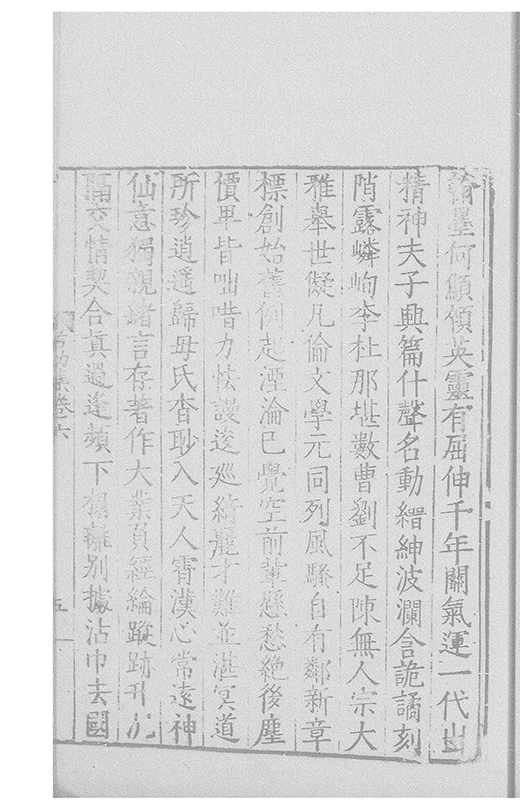 翰墨何顦顇英靈有屈伸千年關氣運一代出
精神夫子興篇什聲名動縉紳波瀾含詭譎刻
陗露嶙峋李杜那堪數曹劉不足陳無人宗大
雅舉世儗凡倫文學元同列風騷自有鄰新章
標創始舊例起湮淪已覺空前輩懸愁絕後塵
價畢皆咄唶力怯謾逡巡綺靡才難並湛冥道
所珍逍遙歸母氏杳眇入天人霄漢心常遠神
仙意獨親緒言存著作大業負經綸蹤跡升沉
隔交情契合真過逢頻下榻離別據沾巾去國
集卷六
五